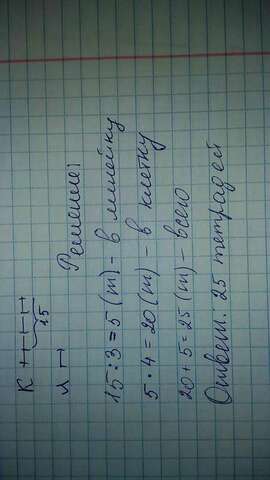 К
15
Л
Решение:
15 : 3 = 5 (т) – в линейку
5 · 4 = 20 (т) – в клетку
20 + 5 = 25 (т) – всего
Ответ: 25 тетрадей